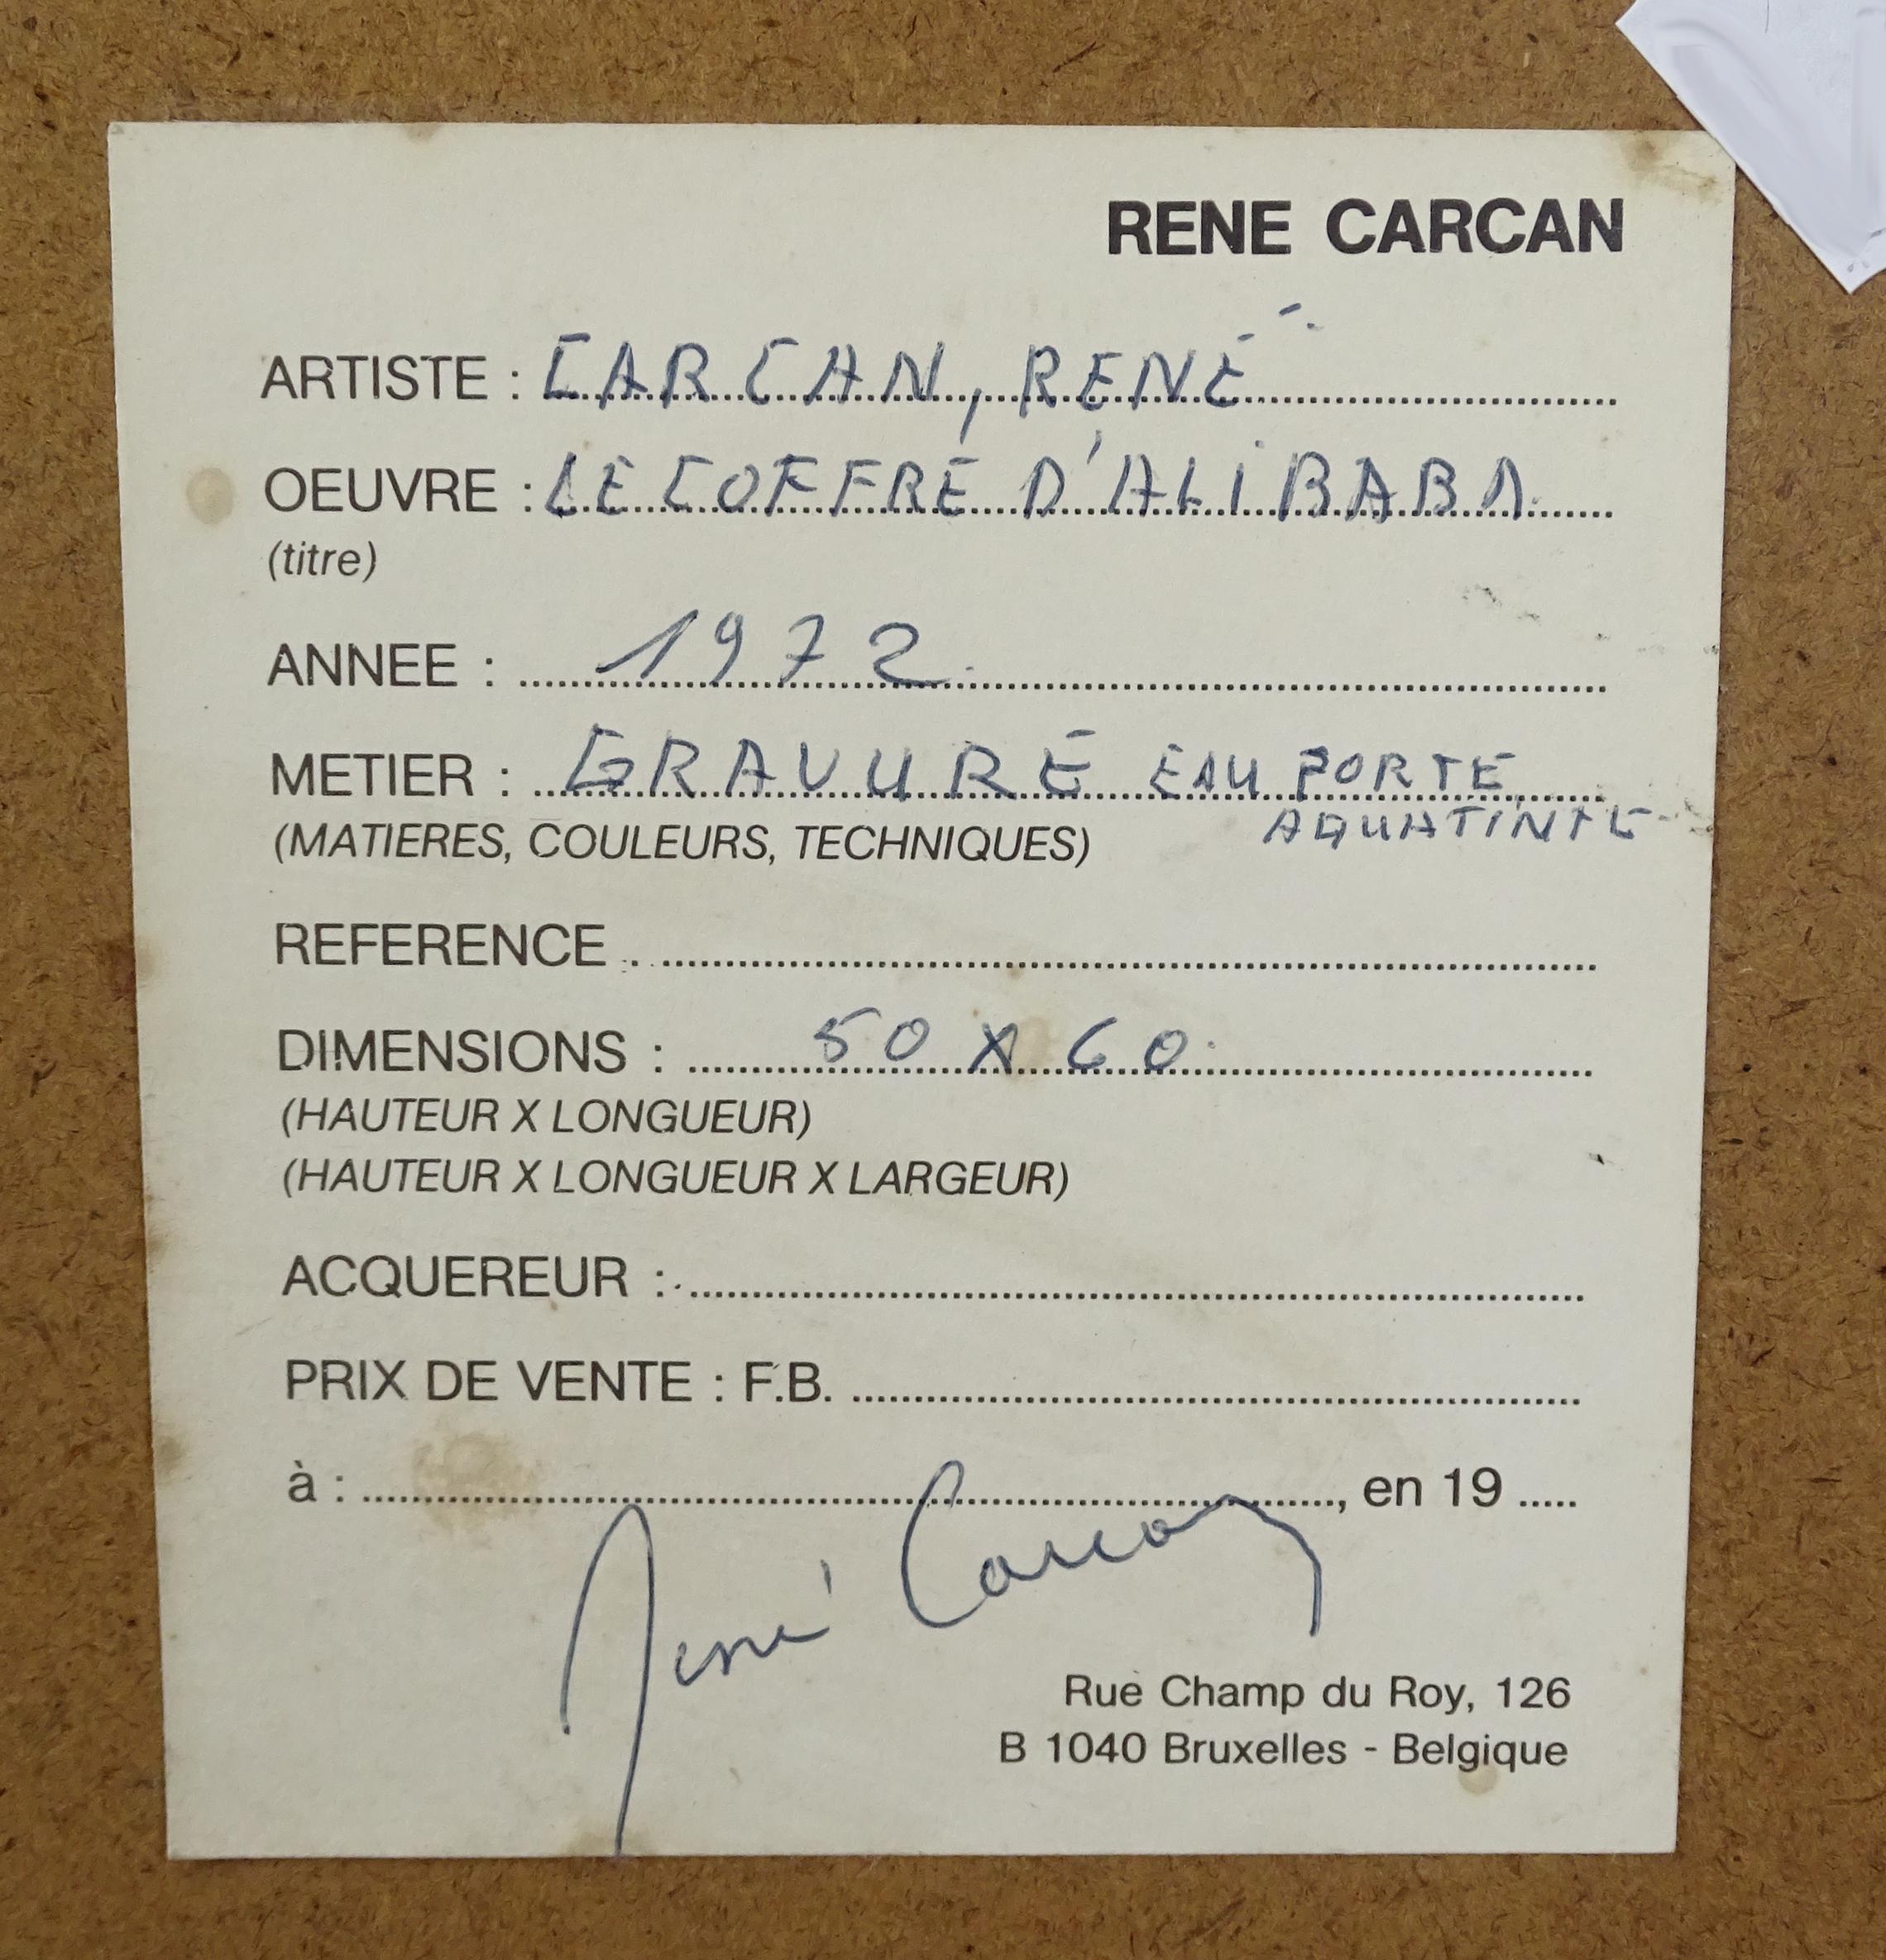 RENE CARCAN
ARTISTE : CARCAN, RENÉ
OEUVRE : LE COFFRE D'ALIBABA
(titre)
ANNEE : 1972
METIER : GRAVURE EAU FORTE
AQUATINTE
(MATIERES, COULEURS, TECHNIQUES)
REFERENCE
DIMENSIONS : 50 X 60
(HAUTEUR X LONGUEUR)
(HAUTEUR X LONGUEUR X LARGEUR)
ACQUEREUR :
PRIX DE VENTE : F.B.
à : , en 19
René Carcan
Rue Champ du Roy, 126
B 1040 Bruxelles - Belgique